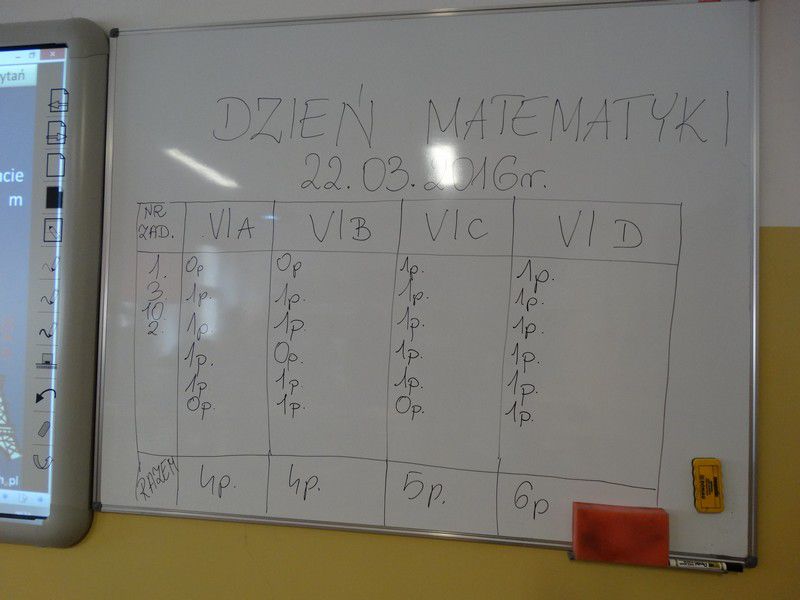 ytań
cie
m
DZIEŃ MATEMATYKI
22.03.2016r.
NR ZAD. VIA VIB VIC VID
1. 0p 0p 1p. 1p.
3. 1p. 1p. 1p. 1p.
10. 1p. 1p. 1p. 1p.
2. 1p. 0p. 1p. 1p.
1p. 1p. 1p. 1p.
0p. 1p. 0p. 1p.
RAZEM 4p. 4p. 5p. 6p